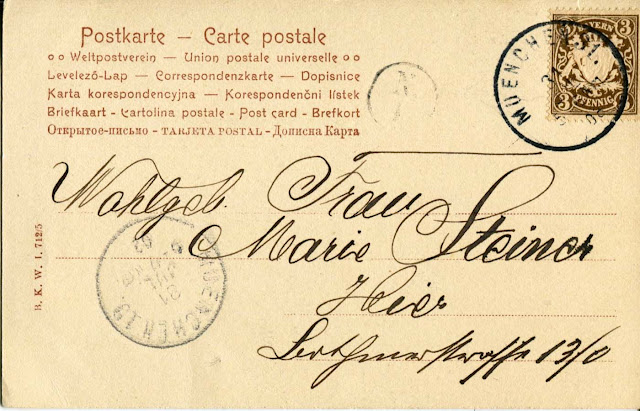 Postkarte — Carte postale
Weltpostverein — Union postale universelle
Levelező-Lap — Correspondenzkarte — Dopisnice
Karta korespondencyjna — Korespondenčni lístek
Briefkaart - Cartolina postale - Post card - Brefkort
Открытое-письмо - TARJETA POSTAL - Дописна Карта
BAYERN
3
3 PFENNIG
MUENCHEN 31.
Wohlgeb. Frau
Marie Steiner
Hier
straße 13/0
MUENCHEN.19.
B. K. W. I. 712/5